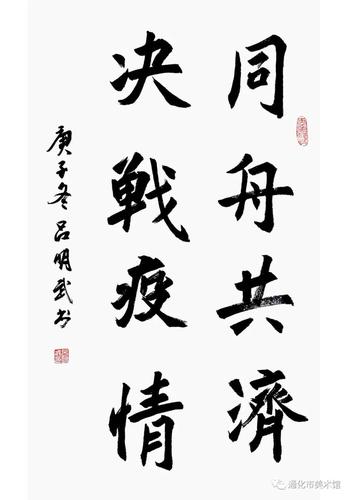 同舟共濟
决戰疫情
庚子冬吕明武书
通化市美术馆